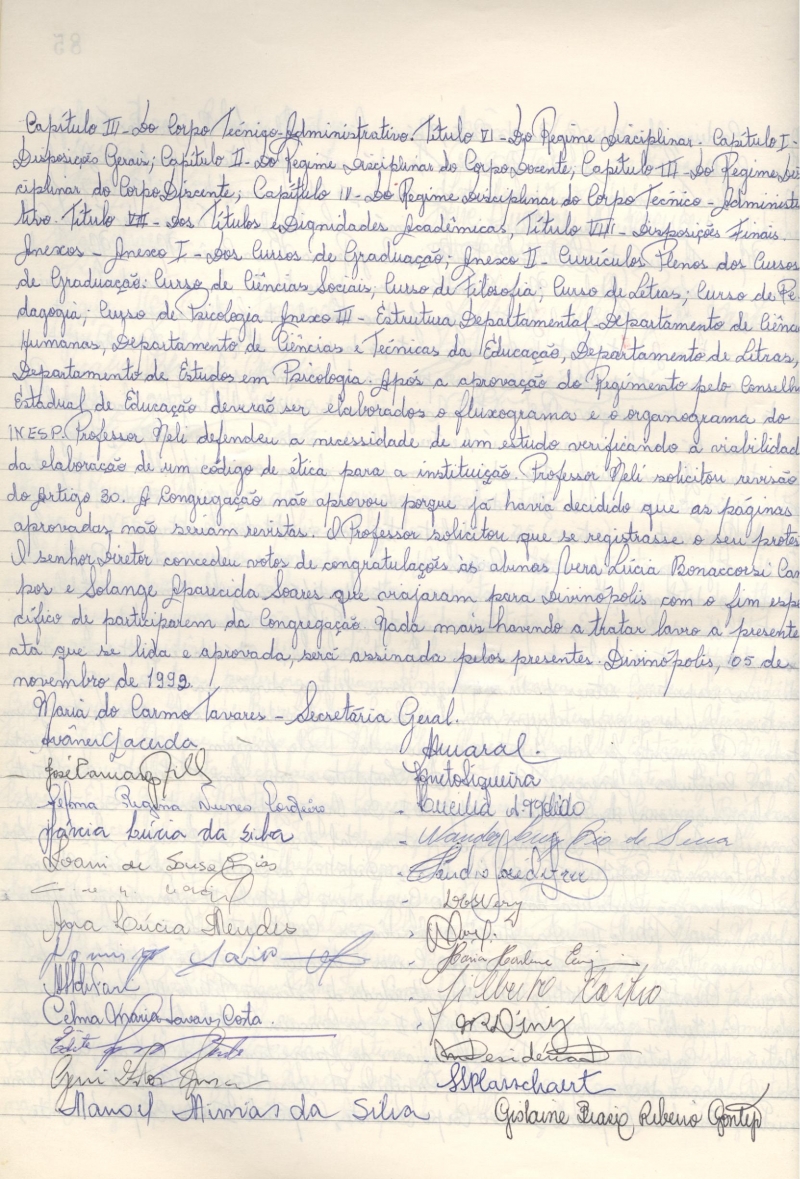 Capítulo III - Do Corpo Técnico-Administrativo. Título VI - Do Regime Disciplinar. Capítulo I -
Disposições Gerais; Capítulo II - Do Regime Disciplinar do Corpo Docente, Capítulo III - Do Regime Dis
ciplinar do Corpo Discente; Capítulo IV - Do Regime Disciplinar do Corpo Técnico - Administra
tivo. Título VII - Dos Títulos e Dignidades Acadêmicas, Título VIII - Disposições Finais.
Anexos - Anexo I - Dos Cursos de Graduação; Anexo II - Currículos Plenos dos Cursos
de Graduação: Curso de Ciências Sociais, Curso de Filosofia; Curso de Letras; Curso de Pe
dagogia; Curso de Psicologia Anexo III - Estrutura Departamental - Departamento de Ciênc
Humanas, Departamento de Ciências e Técnicas da Educação, Departamento de Letras,
Departamento de Estudos em Psicologia. Após a aprovação do Regimento pelo Conselh
Estadual de Educação deverão ser elaborados o fluxograma e o organograma do
INESP. Professor Neli defendeu a necessidade de um estudo verificando a viabilidad
da elaboração de um código de ética para a instituição. Professor Neli solicitou revisão
do Artigo 30. A Congregação não aprovou porque já havia decidido que as páginas
aprovadas, não seriam revistas. O Professor solicitou que se registrasse o seu protes
O senhor Diretor concedeu votos de congratulações às alunas Vera Lúcia Bonaccorsi Cam
pos e Solange Aparecida Soares que viajaram para Divinópolis com o fim espe
cífico de participarem da Congregação. Nada mais havendo a tratar lavro a presente
ata que se lida e aprovada, será assinada pelos presentes. Divinópolis, 05 de
novembro de 1992.
Maria do Carmo Tavares - Secretária Geral.
Amaral.
José
Siqueira
Regina Nunes
Márcia Lúcia da Silva
de Sousa Dias
Ana Lúcia Mendes
Maria Marlene
Gilberto Castro
Celma Maria Tavares Costa.
Edite
SSPlasschaert
Manoel Messias da Silva
Gislaine Ribeiro Gontijo